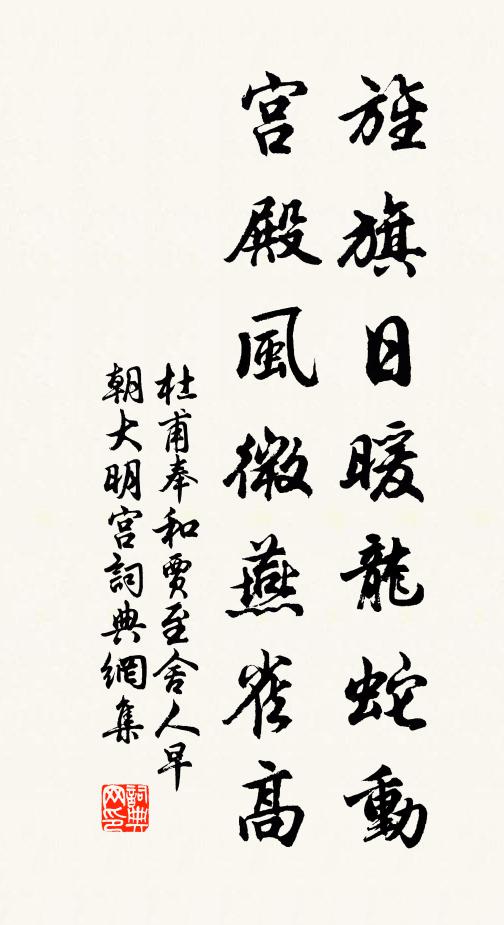 旌旗日暖龍蛇動
宫殿風微燕雀高
杜甫奉和賈至舍人早
朝大明宫詞典網集
詞典
网印